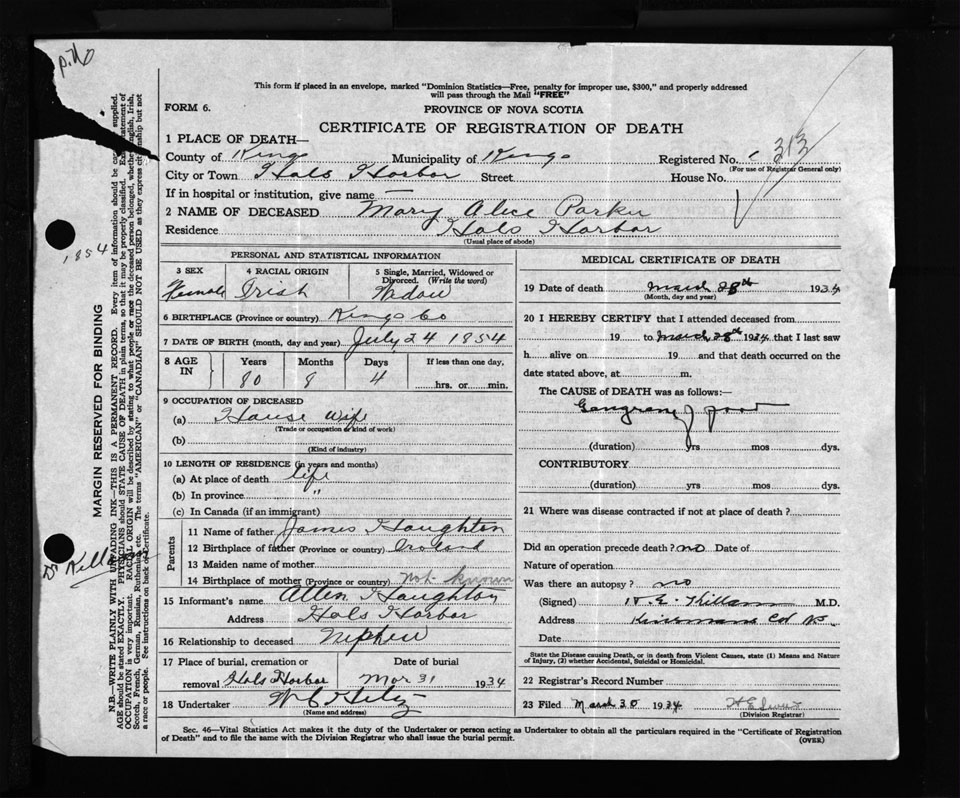 p.260
This form if placed in an envelope, marked "Dominion Statistics—Free, penalty for improper use, $300," and properly addressed
will pass through the Mail "FREE"
FORM 6.
PROVINCE OF NOVA SCOTIA
CERTIFICATE OF REGISTRATION OF DEATH
1 PLACE OF DEATH—
County of Kings Municipality of Kings Registered No. 313
(For use of Registrar General only)
City or Town Hals Harbor Street House No.
If in hospital or institution, give name —
2 NAME OF DECEASED Mary Alice Parker
Residence Hals Harbor
(Usual place of abode)
PERSONAL AND STATISTICAL INFORMATION
3 SEX 4 RACIAL ORIGIN 5 Single, Married, Widowed or
Divorced. (Write the word)
Female Irish Widow
6 BIRTHPLACE (Province or country) Kings Co
7 DATE OF BIRTH (month, day and year) July 24 1854
8 AGE IN Years Months Days If less than one day,
80 8 4 hrs. or min.
9 OCCUPATION OF DECEASED
(a) House wife
(Trade or occupation or kind of work)
(b)
(Kind of industry)
10 LENGTH OF RESIDENCE (in years and months)
(a) At place of death life
(b) In province "
(c) In Canada (if an immigrant)
Parents
11 Name of father James Houghton
12 Birthplace of father (Province or country) Ireland
13 Maiden name of mother
14 Birthplace of mother (Province or country) not known
15 Informant's name Allen Houghton
Address Hals Harbor
16 Relationship to deceased Nephew
17 Place of burial, cremation or Date of burial
removal Hals Harbor Mar 31 1934
18 Undertaker
(Name and address)
MEDICAL CERTIFICATE OF DEATH
19 Date of death March 28th 1934
(Month, day and year)
20 I HEREBY CERTIFY that I attended deceased from
19 to March 28th 1934 that I last saw
h alive on 19 and that death occurred on the
date stated above, at m.
The CAUSE OF DEATH was as follows:—
Gangrene of foot
(duration) yrs mos dys.
CONTRIBUTORY
(duration) yrs mos dys.
21 Where was disease contracted if not at place of death?
Did an operation precede death? no Date of
Nature of operation
Was there an autopsy? no
(Signed) Killam M.D.
Address Kinsmans
Date
State the Disease causing Death, or in death from Violent Causes, state (1) Means and Nature
of Injury, (2) whether Accidental, Suicidal or Homicidal.
22 Registrar's Record Number
23 Filed March 30 1934
(Division Registrar)
Sec. 46—Vital Statistics Act makes it the duty of the Undertaker or person acting as Undertaker to obtain all the particulars required in the "Certificate of Registration
of Death" and to file the same with the Division Registrar who shall issue the burial permit.
(OVER)
1854
Dr Killam
MARGIN RESERVED FOR BINDING
N.B.—WRITE PLAINLY WITH UNFADING INK—THIS IS A PERMANENT RECORD. Every item of information should be supplied.
AGE should be stated EXACTLY. PHYSICIANS should STATE CAUSE OF DEATH in plain terms, so that it may be properly classified. statement of
OCCUPATION is very important. RACIAL ORIGIN will be described by stating to what people or race the deceased person belonged, whether English, Irish,
Scotch, French, German, Russian, Ruthenian, etc. The terms "AMERICAN" or "CANADIAN" SHOULD NOT BE USED as they express citizenship but not
a race or people. See instructions on back of Certificate.